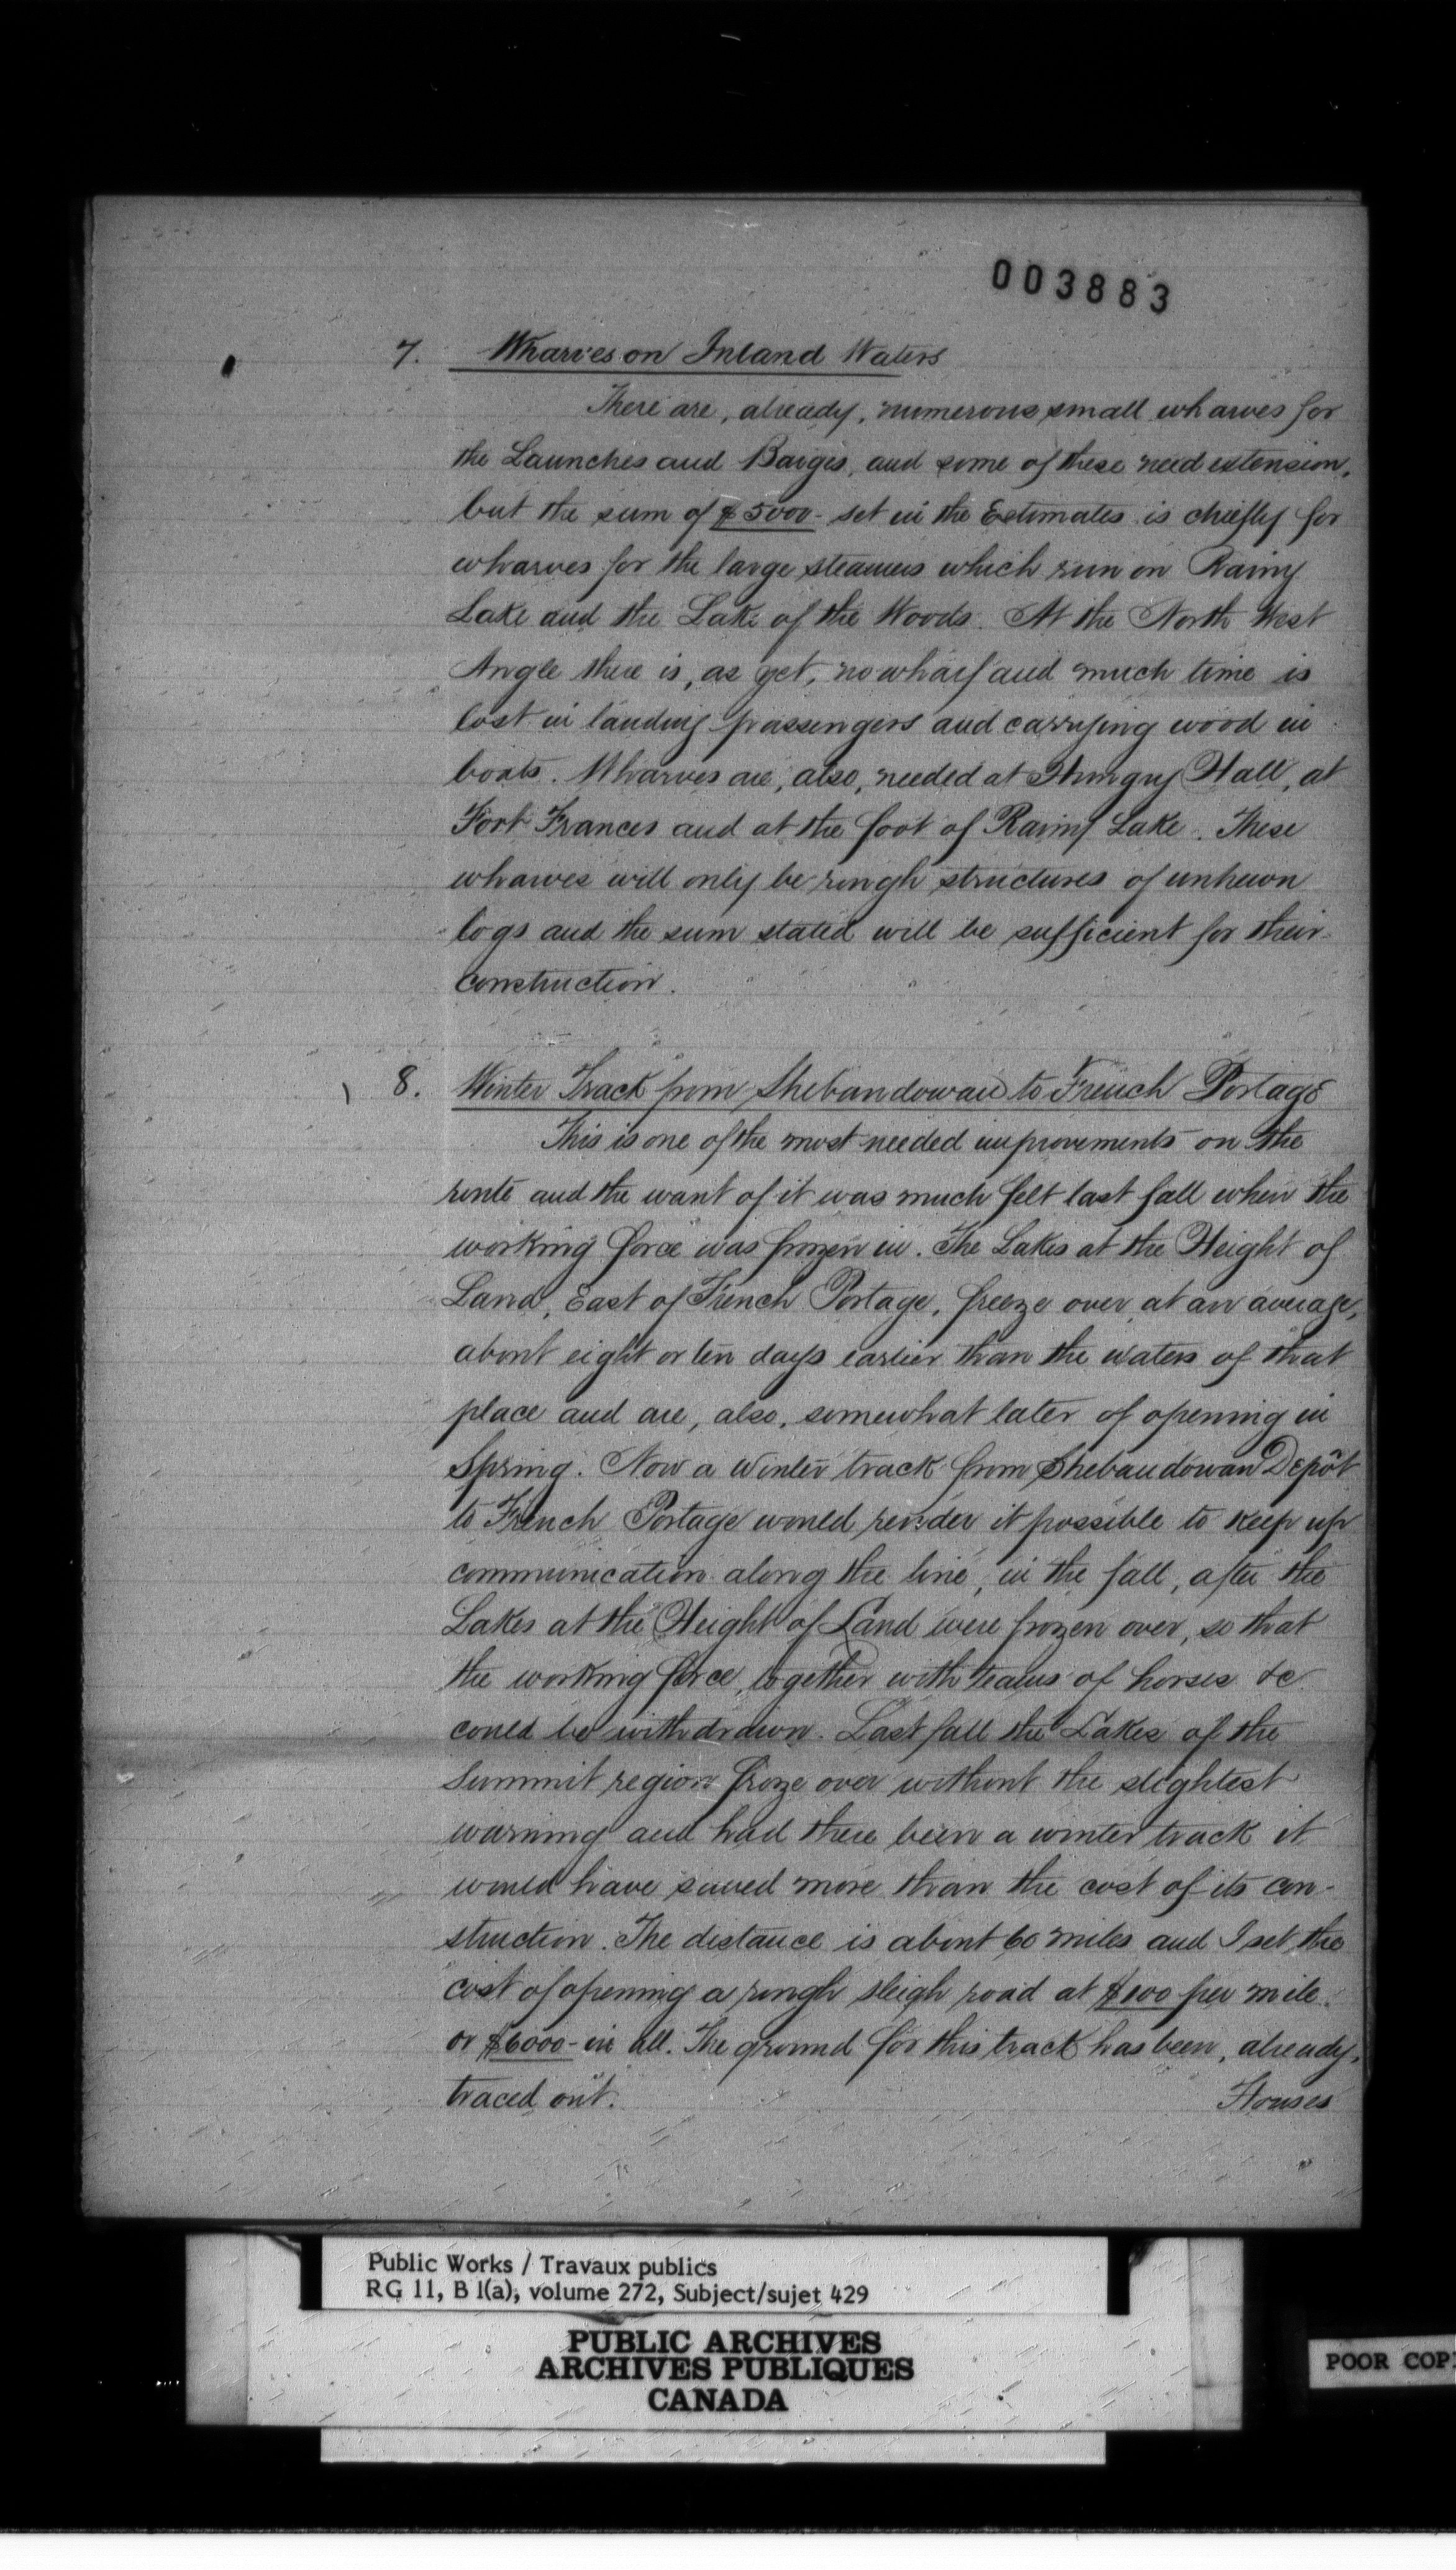 003883
7. Wharves on Inland Waters
There are, already, numerous small wharves for
the Launches and Barges, and some of these need extension,
but the sum of $5000- set in the Estimates is chiefly for
wharves for the large steamers which run on Rainy
Lake and the Lake of the Woods. At the North West
Angle there is, as yet, no wharf and much time is
lost in landing passengers and carrying wood in
boats. Wharves are, also, needed at Hungry Hall, at
Fort Frances and at the foot of Rainy Lake. These
wharves will only be rough structures of unhewn
logs and the sum stated will be sufficient for their
construction.
8. Winter Track from Shebandowan to French Portage
This is one of the most needed improvements on the
route and the want of it was much felt last fall when the
working force was frozen in. The Lakes at the Height of
Land, East of French Portage, freeze over, at an average,
about eight or ten days earlier than the waters of that
place and are, also, somewhat later of opening in
Spring. Now a winter track from Shebandowan Depôt
to French Portage would render it possible to keep up
communication along the line, in the fall, after the
Lakes at the Height of Land were frozen over, so that
the working force, together with teams of horses &c
could be withdrawn. Last fall the Lakes of the
Summit region froze over without the slightest
warning and had there been a winter track it
would have saved more than the cost of its con-
struction. The distance is about 60 miles and I set the
cost of opening a rough sleigh road at $100 per mile.
or $6000- in all. The ground for this track has been, already,
traced out.
Houses
Public Works / Travaux publics
RG 11, B 1(a), volume 272, Subject/sujet 429
PUBLIC ARCHIVES
ARCHIVES PUBLIQUES
CANADA
POOR COP